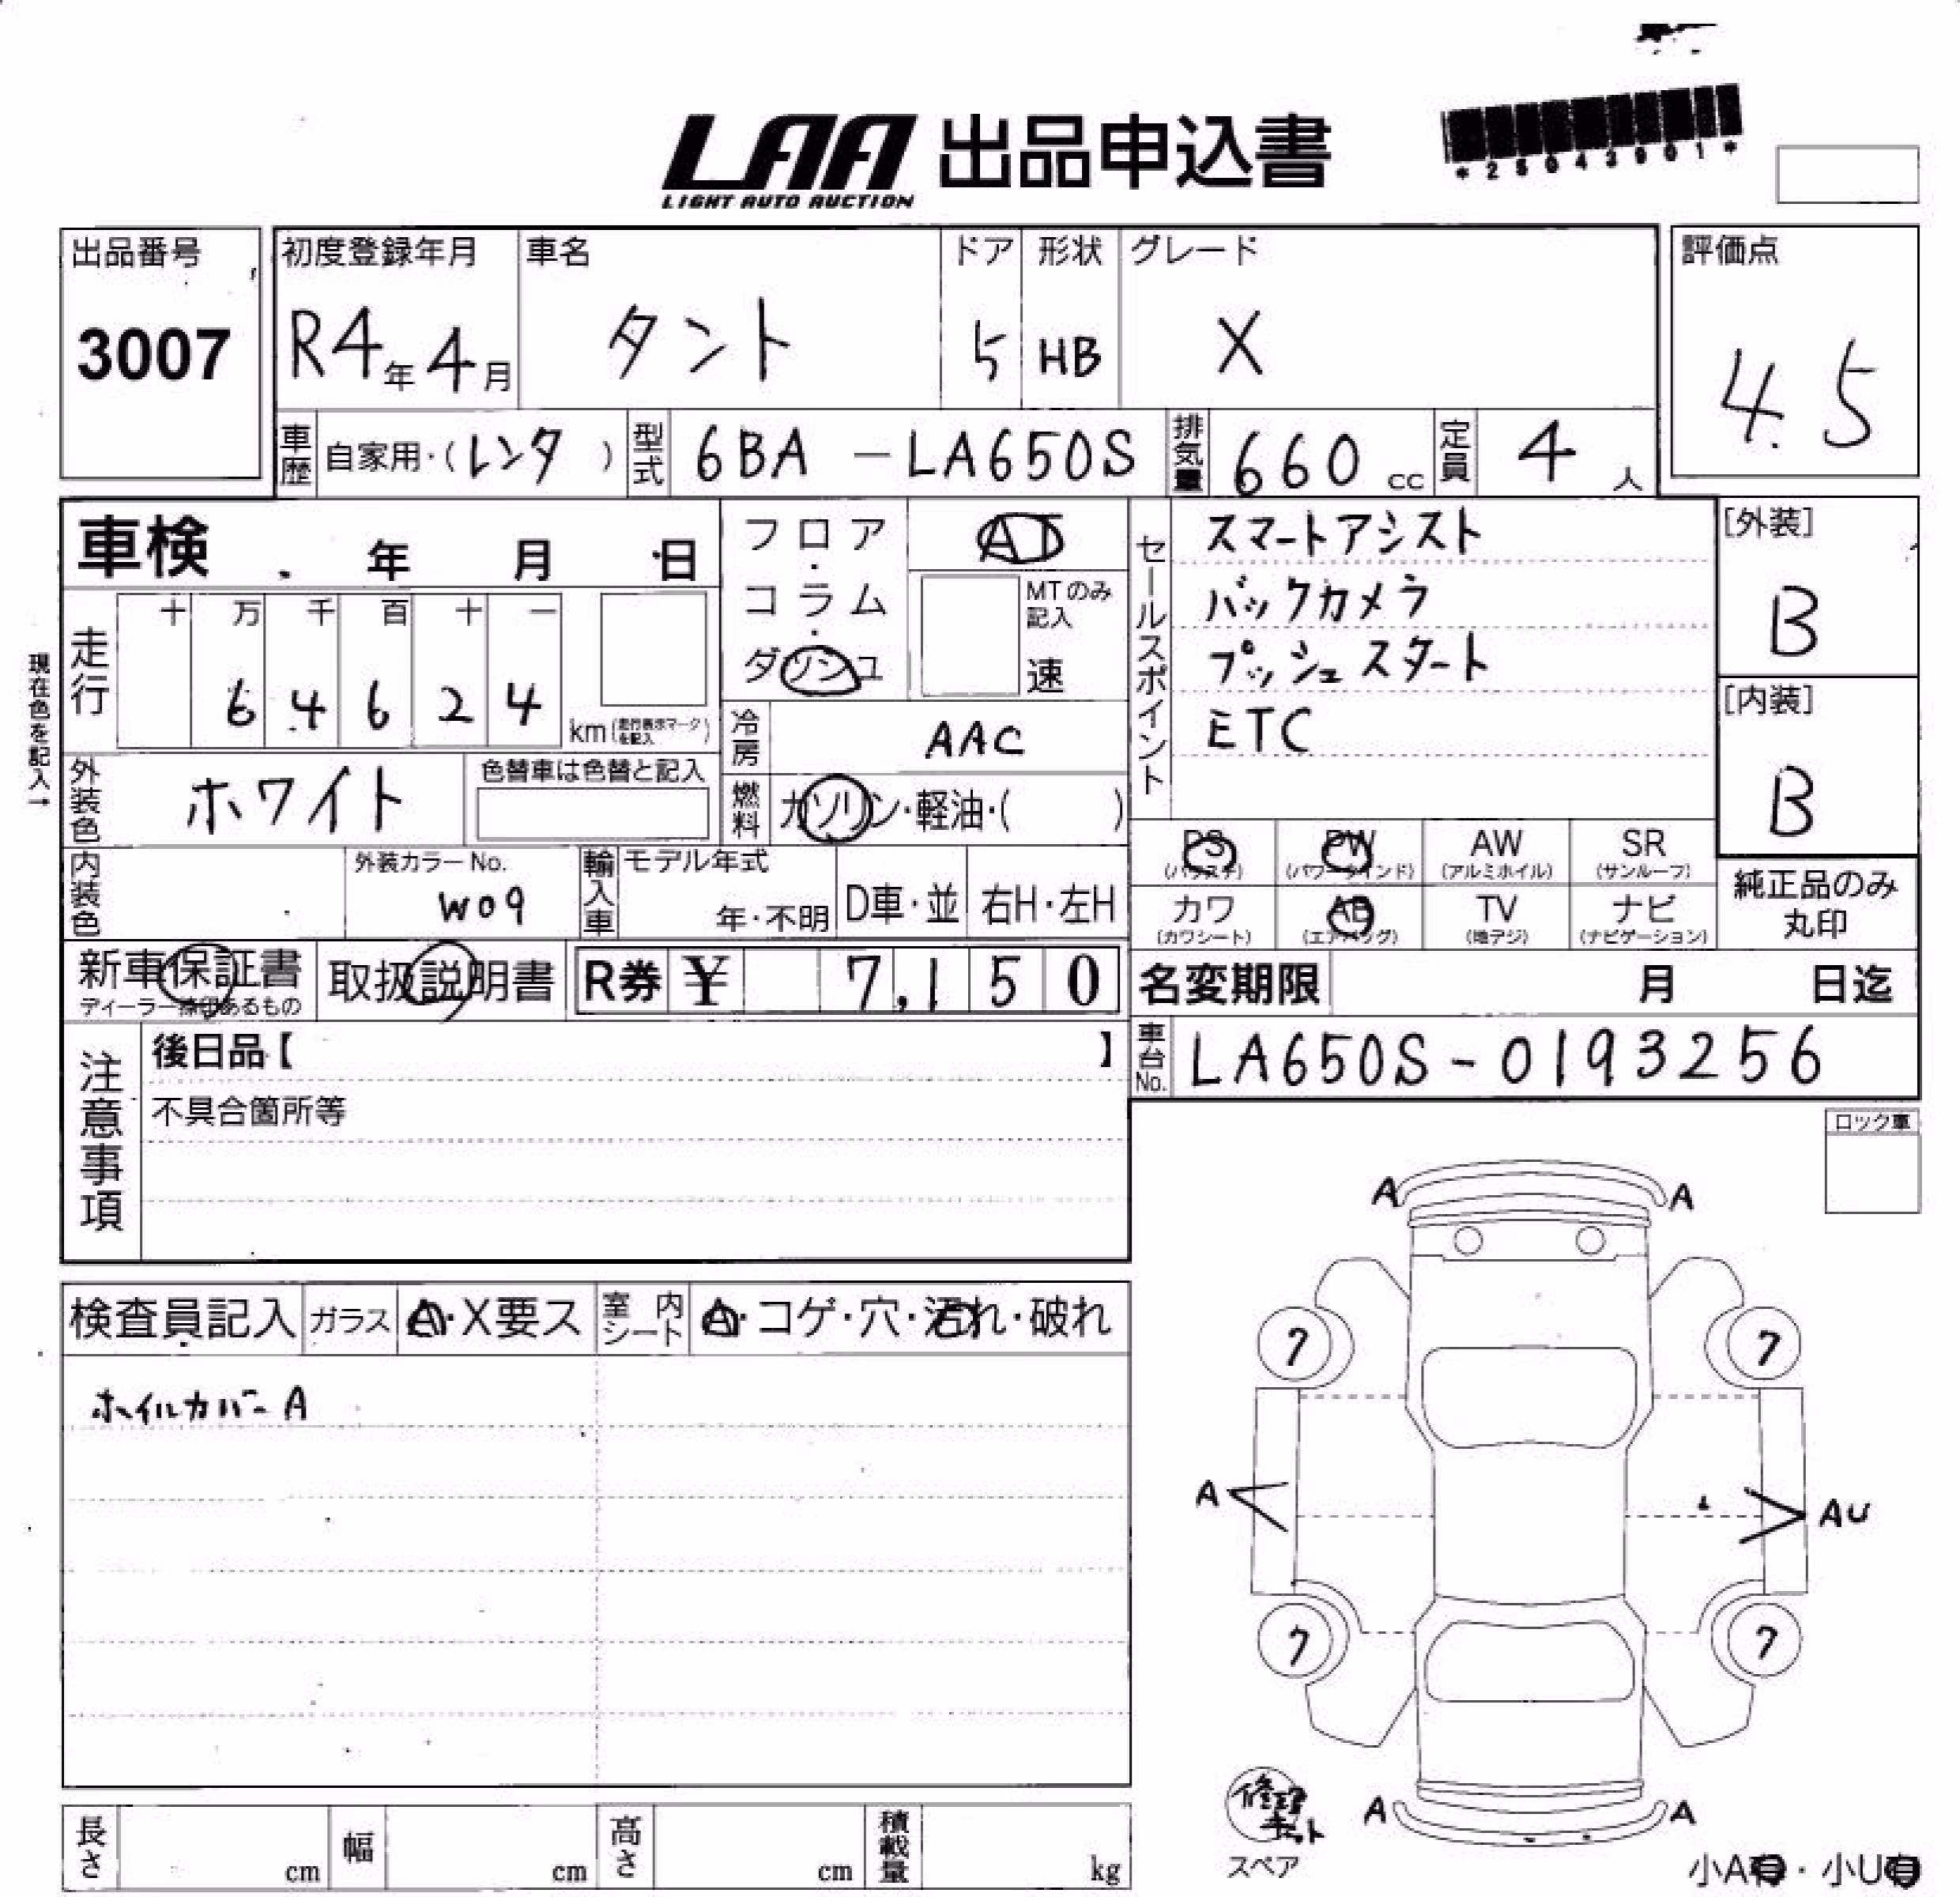 LAA 出品申込書
LIGHT AUTO AUCTION
出品番号 初度登録年月 車名 ドア 形状 グレード 評価点
3007 R4年4月 タント 5 HB X 4.5
車歴 自家用・(レンタ) 型式 6BA-LA650S 排気量 660cc 定員 4人
車検 年 月 日
フロア・コラム・ダッシュ
AT
MTのみ記入
速
セールスポイント
スマートアシスト
バックカメラ
プッシュスタート
ETC
[外装]
B
[内装]
B
現在色を記入→
走行 十 万 千 百 十 一
6 4 6 2 4 km (走行表示マークを記入)
冷房 AAC
外装色 ホワイト 色替車は色替と記入
燃料 ガソリン・軽油・( )
PS PW AW SR
(パワステ) (パワーウインド) (アルミホイル) (サンルーフ)
カワ AB TV ナビ
(カワシート) (エアバッグ) (地デジ) (ナビゲーション)
純正品のみ
丸印
内装色 外装カラーNo.
W09
輸入車 モデル年式
年・不明 D車・並 右H・左H
新車保証書 取扱説明書 R券 ¥ 7,150 名変期限 月 日迄
ディーラー捺印あるもの
車台No. LA650S-0193256
注意事項
後日品【 】
不具合箇所等
ロック車
検査員記入 ガラス A・X要ス 室内シート A・コゲ・穴・汚れ・破れ
ホイルカバーA
A A
7 7
A AU
7 7
A A
修理キット
スペア
小A有・小U有
長さ cm 幅 cm 高さ cm 積載量 kg